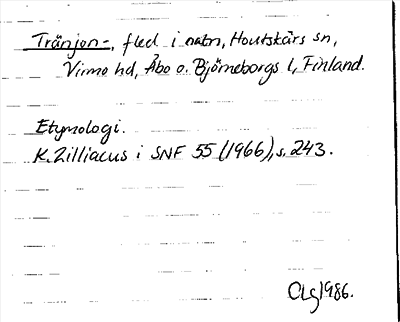 Tränjon-, fled i natn, Houtskärs sn,
Virmo hd, Åbo o. Björneborgs l, Finland.
Etymologi.
K. Zilliacus i SNF 55 (1966), s. 243.
OLg 1986.